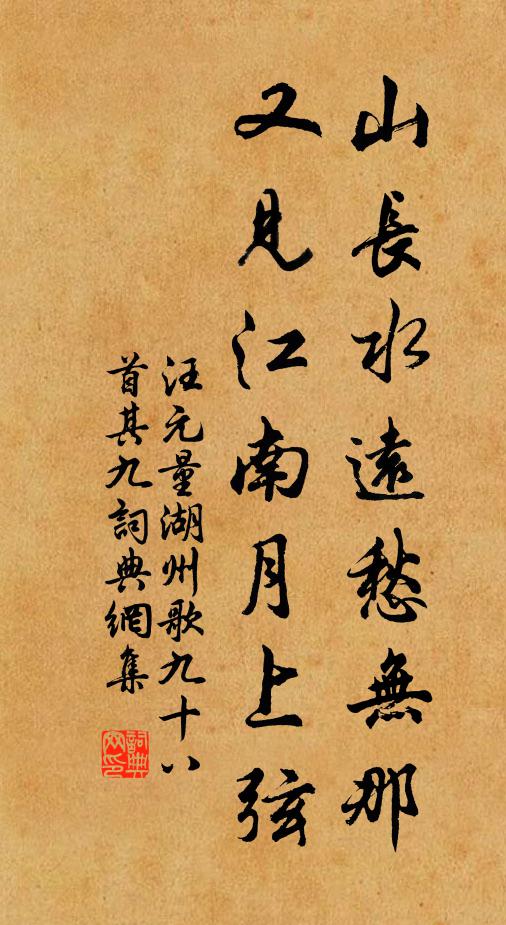 山長水遠愁無那
又見江南月上弦
汪元量湖州歌九十八
首其九詞典網集
詞典
网印